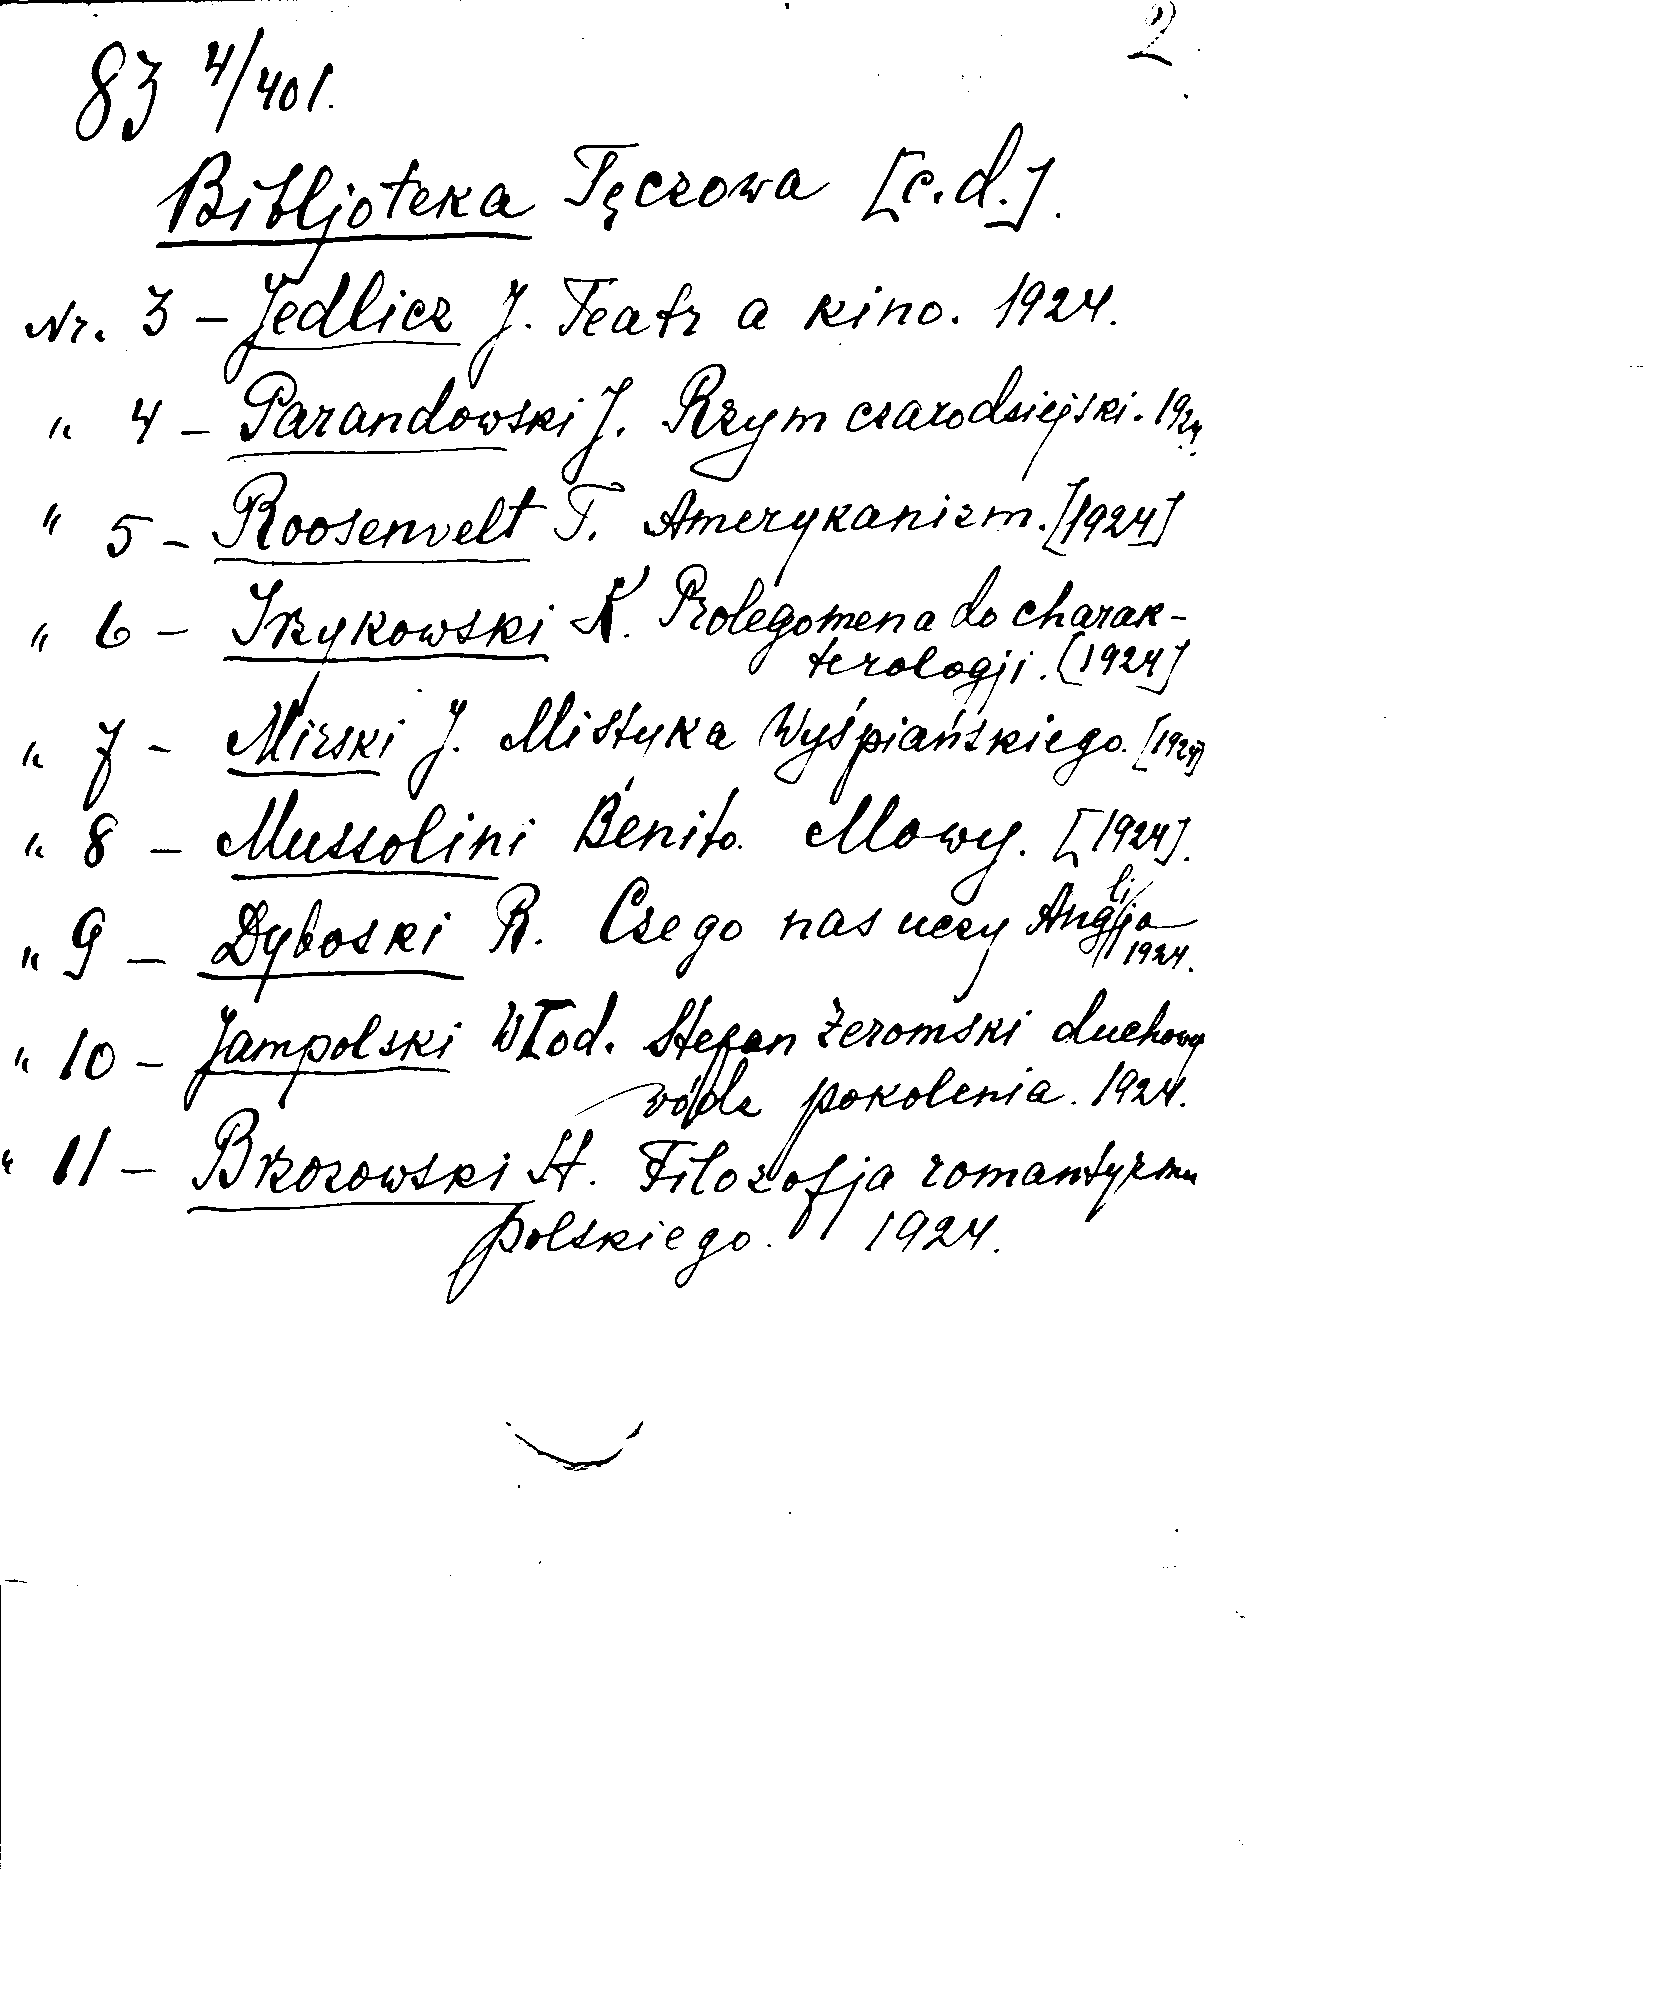 2
83 4/401.
Bibljoteka Tęczowa [c.d.].
Nr. 3 – Jedlicz J. Teatr a kino. 1924.
" 4 – Parandowski J. Rzym czarodziejski. 1924.
" 5 – Roosenvelt T. Amerykanizm. [1924]
" 6 – Irzykowski K. Prolegomena do charak-
terologji. [1924]
" 7 – Mirski J. Mistyka Wyśpiańskiego. [1924]
" 8 – Mussolini Benito. Mowy. [1924].
" 9 – Dyboski R. Czego nas uczy Anglja
1924.
" 10 – Jampolski Włod. Stefan Żeromski duchowy
wódz pokolenia. 1924.
" 11 – Brzozowski St. Filozofja romantyzmu
polskiego. 1924.